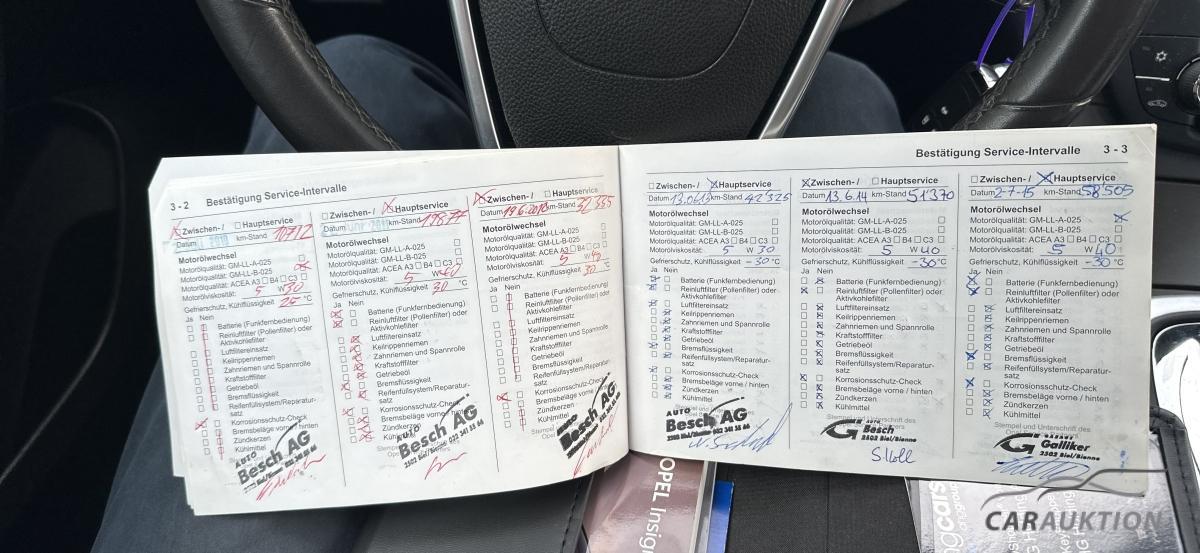 3 - 2 Bestätigung Service-Intervalle
Zwischen-/ Hauptservice
Datum 2010 km-Stand 10712
Motorölwechsel
Motorölqualität: GM-LL-A-025
Motorölqualität: GM-LL-B-025
Motorölqualität: ACEA A3 B4 C3
Motorölviskosität: 5 W 30
Gefrierschutz, Kühlflüssigkeit 25 °C
Ja Nein
Batterie (Funkfernbedienung)
Reinluftfilter (Pollenfilter) oder
Aktivkohlefilter
Luftfiltereinsatz
Keilrippenriemen
Zahnriemen und Spannrolle
Kraftstofffilter
Getriebeöl
Bremsflüssigkeit
Reifenfüllsystem/Reparatur-
satz
Korrosionsschutz-Check
Bremsbeläge vorne / hinten
Zündkerzen
Kühlmittel
AUTO
Besch AG
2502 Biel/Bienne 032 341 55 66
Zwischen-/ Hauptservice
Datum km-Stand
Motorölwechsel
Motorölqualität: GM-LL-A-025
Motorölqualität: GM-LL-B-025
Motorölqualität: ACEA A3 B4 C3
Motorölviskosität: 5 W 40
Gefrierschutz, Kühlflüssigkeit 30 °C
Ja Nein
Batterie (Funkfernbedienung)
Reinluftfilter (Pollenfilter) oder
Aktivkohlefilter
Luftfiltereinsatz
Keilrippenriemen
Zahnriemen und Spannrolle
Kraftstofffilter
Getriebeöl
Bremsflüssigkeit
Reifenfüllsystem/Reparatur-
satz
Korrosionsschutz-Check
Bremsbeläge vorne / hinten
Zündkerzen
Kühlmittel
AUTO
Besch AG
2502 Biel/Bienne 032 341 55 66
Zwischen-/ Hauptservice
Datum km-Stand 32 355
Motorölwechsel
Motorölqualität: GM-LL-A-025
Motorölqualität: GM-LL-B-025
Motorölqualität: ACEA A3 B4 C3
Motorölviskosität: 5 W 40
Gefrierschutz, Kühlflüssigkeit 30 °C
Ja Nein
Batterie (Funkfernbedienung)
Reinluftfilter (Pollenfilter) oder
Aktivkohlefilter
Luftfiltereinsatz
Keilrippenriemen
Zahnriemen und Spannrolle
Kraftstofffilter
Getriebeöl
Bremsflüssigkeit
Reifenfüllsystem/Reparatur-
satz
Korrosionsschutz-Check
Bremsbeläge vorne / hinten
Zündkerzen
Kühlmittel
AUTO
Besch AG
2502 Biel/Bienne 032 341 55 66
Bestätigung Service-Intervalle 3 - 3
Zwischen-/ Hauptservice
Datum 13.06.13 km-Stand 42'325
Motorölwechsel
Motorölqualität: GM-LL-A-025
Motorölqualität: GM-LL-B-025
Motorölqualität: ACEA A3 B4 C3
Motorölviskosität: 5 W 30
Gefrierschutz, Kühlflüssigkeit -30 °C
Ja Nein
Batterie (Funkfernbedienung)
Reinluftfilter (Pollenfilter) oder
Aktivkohlefilter
Luftfiltereinsatz
Keilrippenriemen
Zahnriemen und Spannrolle
Kraftstofffilter
Getriebeöl
Bremsflüssigkeit
Reifenfüllsystem/Reparatur-
satz
Korrosionsschutz-Check
Bremsbeläge vorne / hinten
Zündkerzen
Kühlmittel
AUTO
Besch AG
2502 Biel/Bienne 032 341 55 66
Zwischen-/ Hauptservice
Datum 13.6.14 km-Stand 51'370
Motorölwechsel
Motorölqualität: GM-LL-A-025
Motorölqualität: GM-LL-B-025
Motorölqualität: ACEA A3 B4 C3
Motorölviskosität: 5 W 40
Gefrierschutz, Kühlflüssigkeit -30 °C
Ja Nein
Batterie (Funkfernbedienung)
Reinluftfilter (Pollenfilter) oder
Aktivkohlefilter
Luftfiltereinsatz
Keilrippenriemen
Zahnriemen und Spannrolle
Kraftstofffilter
Getriebeöl
Bremsflüssigkeit
Reifenfüllsystem/Reparatur-
satz
Korrosionsschutz-Check
Bremsbeläge vorne / hinten
Zündkerzen
Kühlmittel
Stempel und Unterschrift des
Besch
2502 Biel/Bienne
Zwischen-/ Hauptservice
Datum 2-7-15 km-Stand 58'505
Motorölwechsel
Motorölqualität: GM-LL-A-025
Motorölqualität: GM-LL-B-025
Motorölqualität: ACEA A3 B4 C3
Motorölviskosität: 5 W 40
Gefrierschutz, Kühlflüssigkeit -30 °C
Ja Nein
Batterie (Funkfernbedienung)
Reinluftfilter (Pollenfilter) oder
Aktivkohlefilter
Luftfiltereinsatz
Keilrippenriemen
Zahnriemen und Spannrolle
Kraftstofffilter
Getriebeöl
Bremsflüssigkeit
Reifenfüllsystem/Reparatur-
satz
Korrosionsschutz-Check
Bremsbeläge vorne / hinten
Zündkerzen
Kühlmittel
Stempel und Unterschrift des
GARAGE
Galliker
2502 Biel/Bienne
OPEL Insign
gcars
CARAUKTION